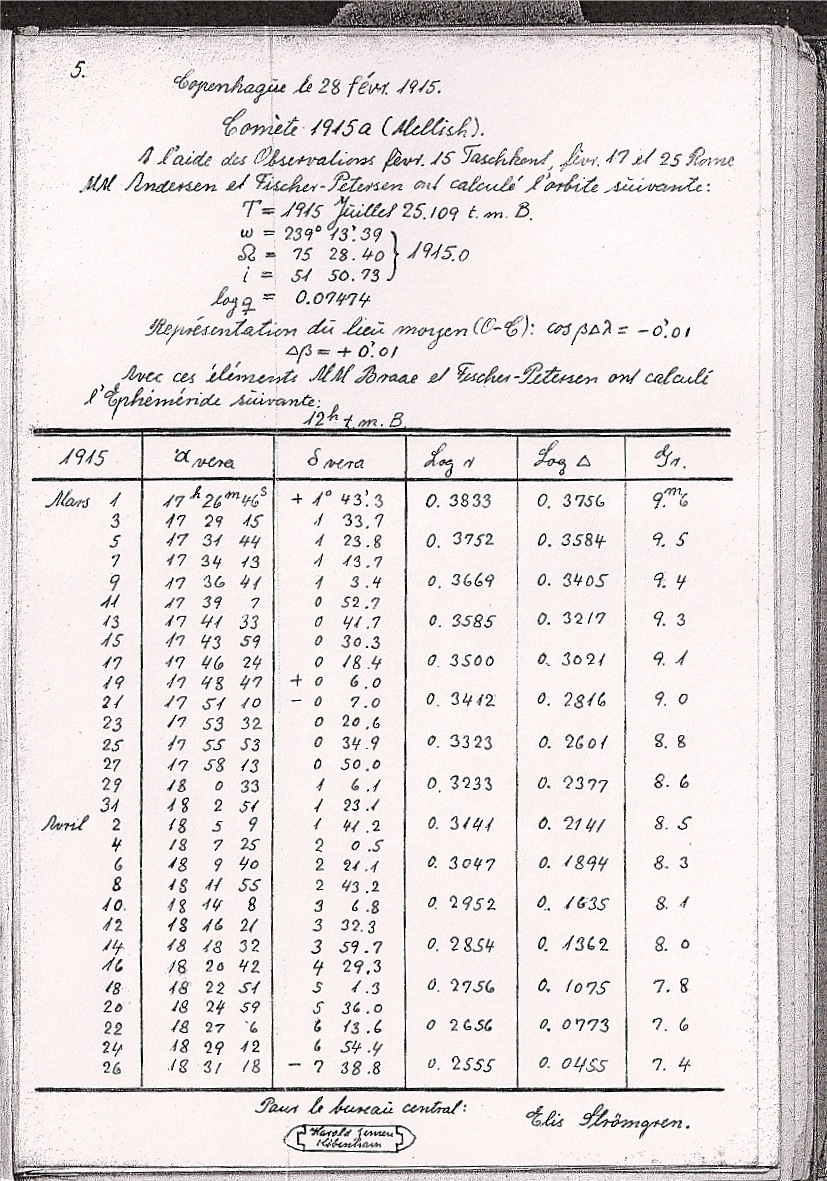 5.
Copenhague le 28 févr. 1915.
Comète 1915a (Mellish).
A l'aide des Observations févr. 15 Taschkent, févr. 17 et 25 Rome
MM Andersen et Fischer-Petersen ont calculé l'orbite suivante:
T = 1915 Juillet 25.109 t. m. B.
ω = 239° 13'.39
Ω = 75 28.40 } 1915.0
i = 51 50.73
log q = 0.07474
Représentation du lieu moyen (O-C): cos β Δλ = -0'.01
Δβ = + 0'.01
Avec ces éléments MM Braae et Fischer-Petersen ont calculé
l'Ephéméride suivante:
12h t. m. B.
1915 α vera δ vera Log r Log Δ Gr.
Mars 1 17h 26m 46s + 1° 43'.3 0.3833 0.3756 9m.6
3 17 29 15 1 33.7
5 17 31 44 1 23.8 0.3752 0.3584 9.5
7 17 34 13 1 13.7
9 17 36 41 1 3.4 0.3669 0.3405 9.4
11 17 39 7 0 52.7
13 17 41 33 0 41.7 0.3585 0.3217 9.3
15 17 43 59 0 30.3
17 17 46 24 0 18.4 0.3500 0.3021 9.1
19 17 48 47 + 0 6.0
21 17 51 10 - 0 7.0 0.3412 0.2816 9.0
23 17 53 32 0 20.6
25 17 55 53 0 34.9 0.3323 0.2601 8.8
27 17 58 13 0 50.0
29 18 0 33 1 6.1 0.3233 0.2377 8.6
31 18 2 51 1 23.1
Avril 2 18 5 9 1 41.2 0.3141 0.2141 8.5
4 18 7 25 2 0.5
6 18 9 40 2 21.1 0.3047 0.1894 8.3
8 18 11 55 2 43.2
10. 18 14 8 3 6.8 0.2952 0.1635 8.1
12 18 16 21 3 32.3
14 18 18 32 3 59.7 0.2854 0.1362 8.0
16 18 20 42 4 29.3
18 18 22 51 5 1.3 0.2756 0.1075 7.8
20 18 24 59 5 36.0
22 18 27 6 6 13.6 0 2656 0.0773 7.6
24 18 29 12 6 54.4
26 18 31 18 - 7 38.8 0.2555 0.0455 7.4
Pour le bureau central:
Elis Strömgren.
Harold Jensen
Köbenhavn